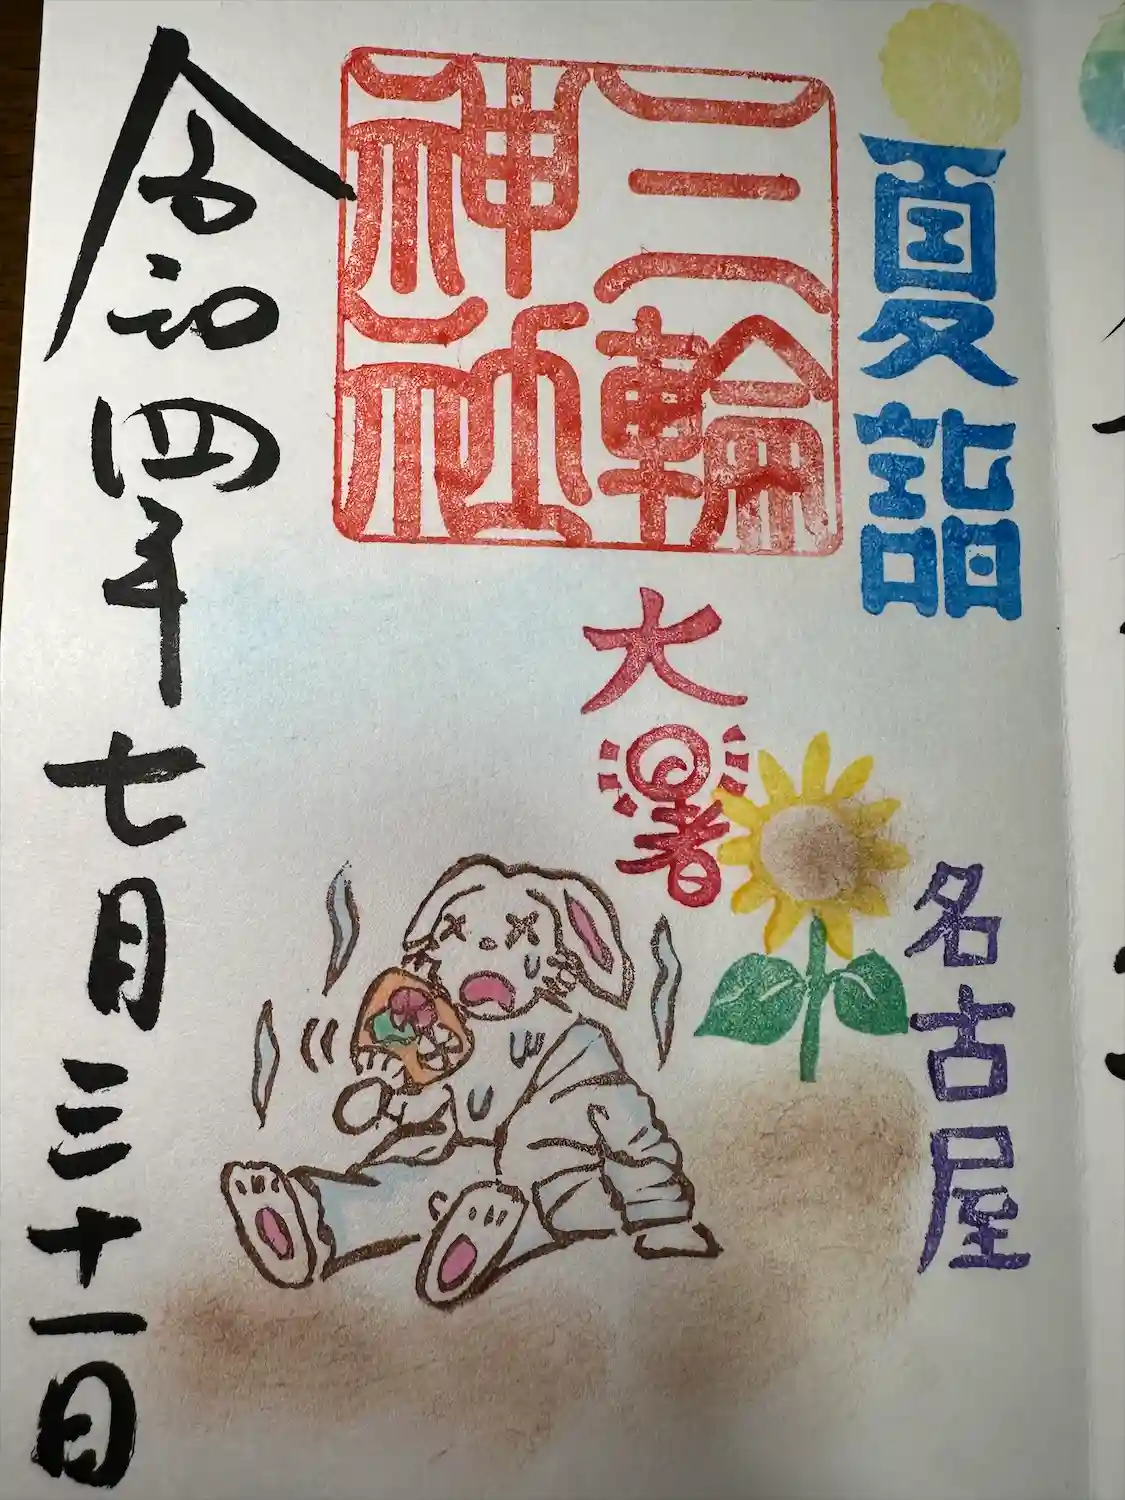 夏詣
三輪
神社
大暑
名古屋
令和四年七月三十一日